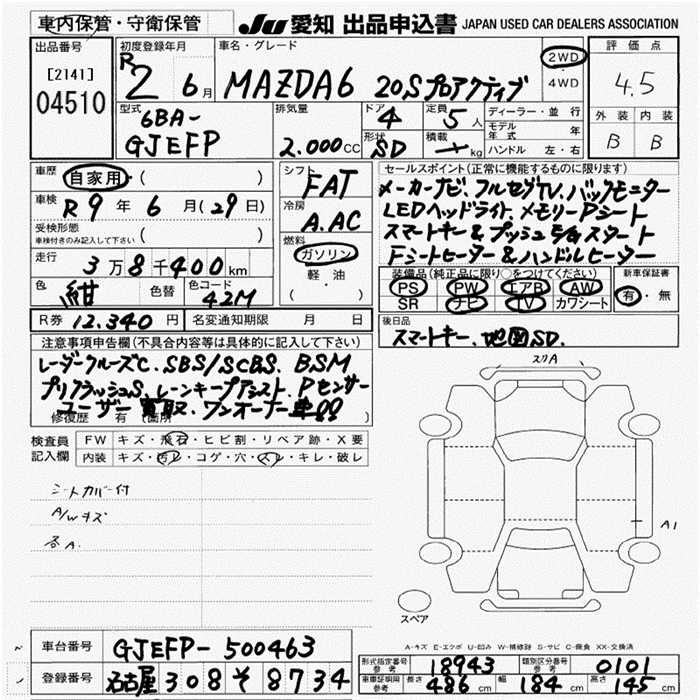 車内保管・守衛保管
JU 愛知 出品申込書 JAPAN USED CAR DEALERS ASSOCIATION
出品番号 [2141] 04510
初度登録年月 R2 6月
車名・グレード MAZDA6 20Sプロアクティブ
2WD・4WD
評価点 4.5
外装 B 内装 B
型式 6BA-GJEFP
排気量 2.000cc
ドア 4 定員 5人
形状 SD 積載 kg
ディーラー・並行
モデル年式 年
ハンドル 左・右
車歴 自家用・( )
車検 R9年6月(29日)
受検形態 車検付きのみ記入して下さい ( )
走行 3万8千400km
色 紺 色替 色コード 42M
R券 12.340円 名変通知期限 月 日
シフト FAT
冷房 A.AC
燃料 ガソリン・軽油 ( )
セールスポイント(正常に機能するものに限ります)
メーカーナビ、フルセグTV、バックモニター
LEDヘッドライト、メモリーPシート
スマートキー&プッシュE/Gスタート
Fシートヒーター&ハンドルヒーター
装備品(純正品に限り○をつけてください) 新車保証書
PS PW エアB AW 有・無
SR ナビ TV カワシート
後日品
スマートキー、地図SD.
注意事項申告欄(不具合内容等は具体的に記入して下さい)
レーダークルーズC. SBS/SCBS. BSM
プリクラッシュS. レーンキープアシスト. Pセンサー
ユーザー買取、ワンオーナー車!!
修復歴 有 (箇所
検査員記入欄
FW キズ・飛石・ヒビ割・リペア跡・X要
内装 キズ・汚レ・コゲ・穴・スレ・キレ・破レ
シートカバー付
A/Wキズ
各A.
スリA
A1
スペア
A-キズ E-エクボ U-凹み W-補修跡 S-サビ C-腐食 XX-交換済
車台番号 GJEFP-500463
登録番号 名古屋 308 そ 8734
形式指定番号 参考 18943 類別区分番号 参考 0101
車車証明用 参考 長さ 486cm 幅 184cm 高さ 145cm